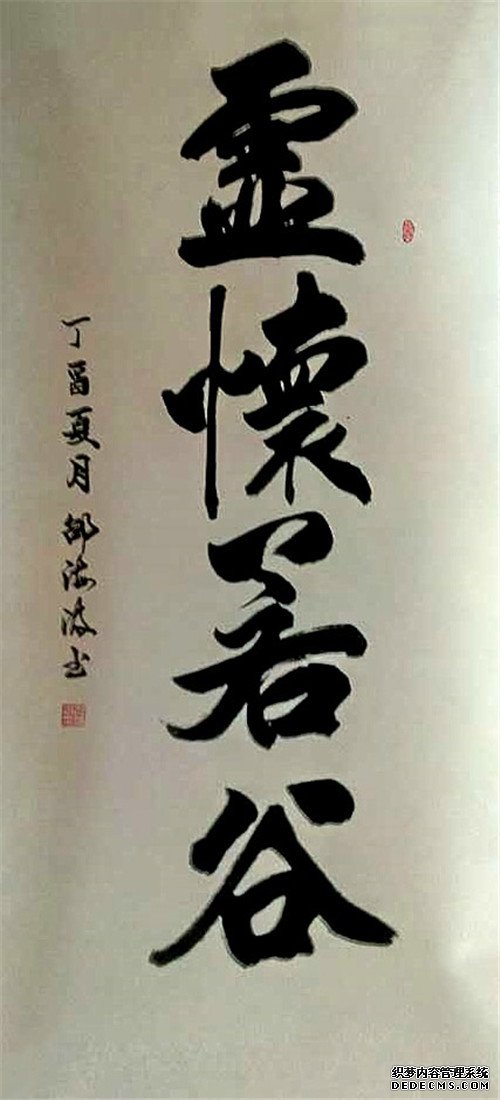 虛懷若谷
丁酉夏月 邰海波书
织梦内容管理系统
DEDECMS.COM